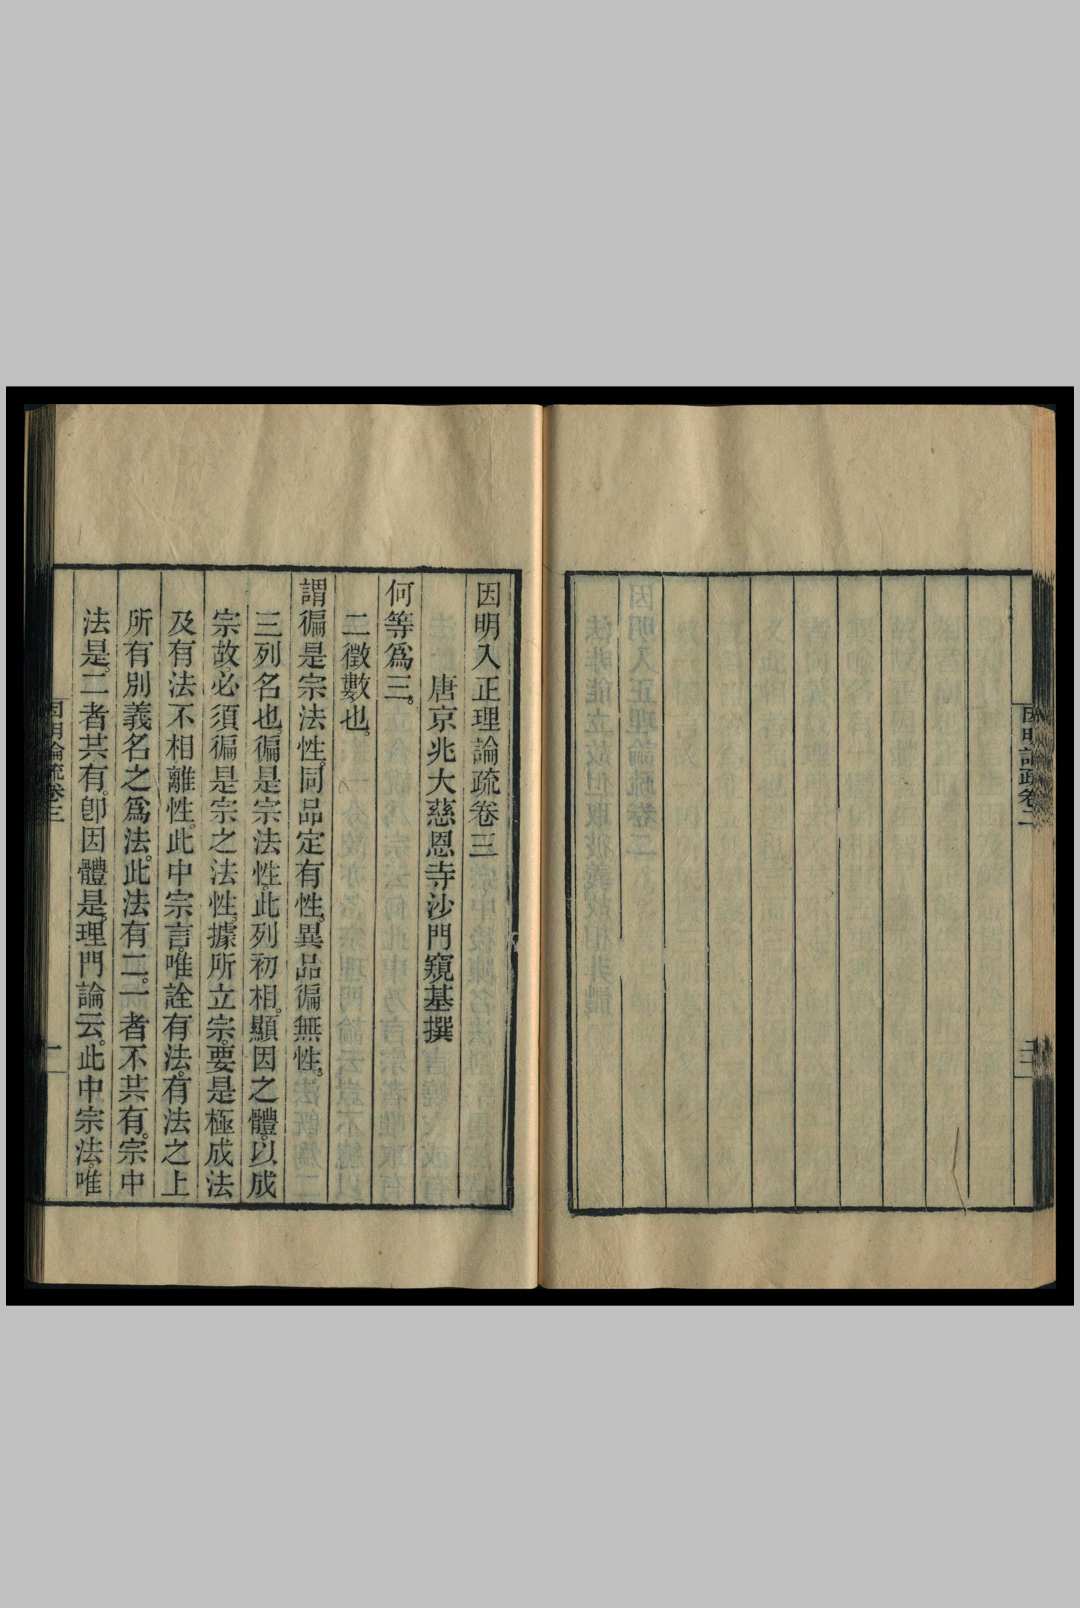 因明論疏卷二
因明入正理論疏卷三
唐京兆大慈恩寺沙門窺基撰
何等爲三。
二徵數也。
謂徧是宗法性。同品定有性。異品徧無性。
三列名也。徧是宗法性。此列初相。顯因之體。以成
宗故。必須徧是宗之法性。據所立宗。要是極成法
及有法不相離性。此中宗言。唯詮有法。有法之上
所有別義。名之爲法。此法有二。一者不共有。宗中
法是。二者共有。卽因體是。理門論云。此中宗法。唯
因明論疏卷三
一